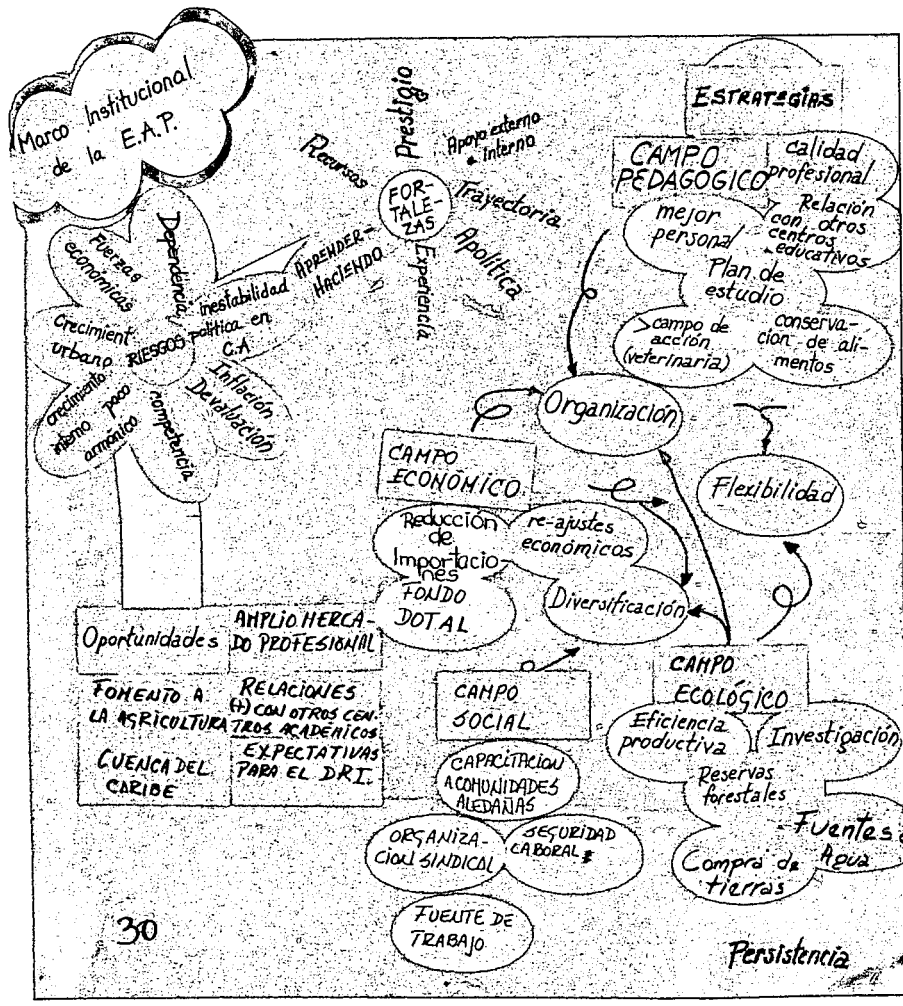 Marco Institucional
de la E.A.P.
Fuerzas
económicas
Dependencia
inestabilidad
política en
C.A
RIESGOS
Crecimient
urbano
crecimiento
interno poco
armónico
competencia
Inflación
Devaluación
FOR-
TALE-
ZAS
Recursos
Prestigio
Apoyo externo
e interno
Trayectoria
Apolítica
Experiencia
APRENDER-
HACIENDO
ESTRATEGIAS
CAMPO
PEDAGÓGICO
calidad
profesional
mejor
personal
Relación
con otros
centros
educativos
Plan de
estudio
>campo de
acción
(veterinaria)
conserva-
cion de ali-
mentos
Organización
Flexibilidad
Diversificación
CAMPO
ECONÓMICO
Reducción
de
Importacio-
nes
re-ajustes
económicos
FONDO
DOTAL
Oportunidades
AMPLIO MERCA-
DO PROFESIONAL
FOMENTO A
LA AGRICULTURA
RELACIONES
(+) CON OTROS CEN-
TROS ACADÉNICOS
CUENCA DEL
CARIBE
EXPECTATIVAS
PARA EL DRI.
CAMPO
SOCIAL
CAPACITACION
A COMUNIDADES
ALEDAÑAS
ORGANIZA-
CION SINDICAL
SEGURIDAD
LABORAL
FUENTE DE
TRABAJO
CAMPO
ECOLÓGICO
Eficiencia
productiva
Investigación
Reservas
forestales
Fuentes
Agua
Compra de
tierras
30
Persistencia